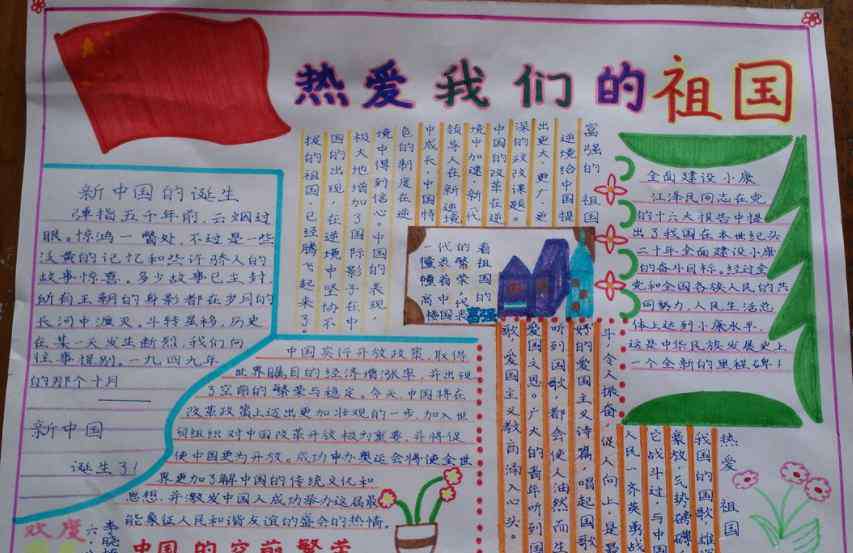 热爱我们的祖国
新中国的诞生
弹指五千年前,云烟过
眼。惊鸿一瞥处,不过是一些
泛黄的记忆和些许骇人的
故事惊喜。多少故事已尘封,
所有王朝的身影都在岁月的
长河中湮灭。斗转星移,历史
在某一天发生断裂,我们向
往事提别。一九四九年
的那个十月
新中国
诞生了!
富强的祖国
逆境给中国提
出更大、更广、更
深的改改课题。
中国的改革在逆
境中加速,新代
领导人在新逆境
中成长,中国特
色的制度在逆
境中得到信心。中国的表现,
极大地增加了国际影子在中
国的出现,在逆境中坚忍不
拔的祖国,已经腾飞起来了。
看祖国的富强
的繁荣代
一代
全面建设小康
江泽民同志在党
的十六大报告中提
出了我国在本世纪头
二十年全面建设小康
的奋斗目标。经过全
党和全国各族人民的共
同努力,人民生活总
体上达到小康水平,
这是中华民族发展史上
一个全新的里程碑!
中国实行开放政策,取得
世界瞩目的经济增涨率,并出现
了空前的繁荣与稳定。今天,中国将在
改革政策上迈出更加壮观的一步,加入世
贸组织对中国改革开放极为重要,并将促
使中国更为开放。成功申办奥运会将使全世
界更加了解中国的传统文化和
思想,并激发中国人成功举办这届最
能象征人民和谐友谊的盛会的热情。
热爱祖国
我国的国歌雄
豪放,气势磅礴
它战斗过,与中国
人民一齐英勇战
斗,令人振奋,促人向上,是最
好的爱国主义诗篇,唱起国歌
听到国歌,都会使人油然而生
爱国之思。广大的青年听到国
歌,爱国主义教育涌入心头。
欢度
中国的空前繁荣